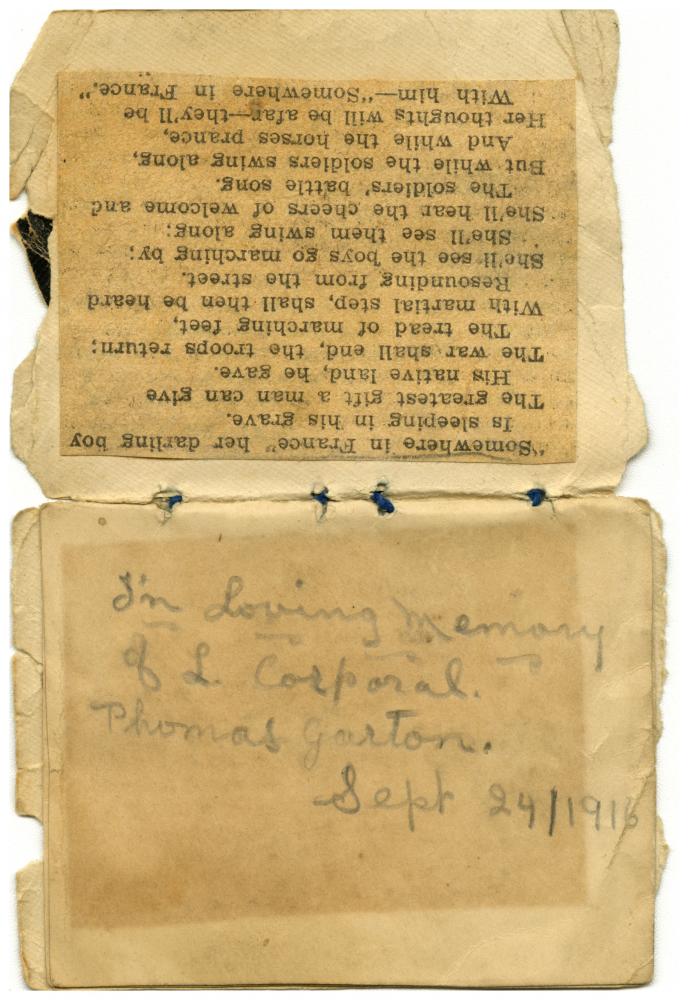 "Somewhere in France" her darling boy
Is sleeping in his grave.
The greatest gift a man can give
His native land, he gave.
The war shall end, the troops return;
The tread of marching feet,
With martial step, shall then be heard
Resounding from the street.
She'll see the boys go marching by;
She'll see them swing along;
She'll hear the cheers of welcome and
The soldiers' battle song.
But while the soldiers swing along,
And while the horses prance,
Her thoughts will be afar—they'll be
With him—"Somewhere in France."
In Loving Memory
of L. Corporal.
Thomas Garton.
Sept 24/1916